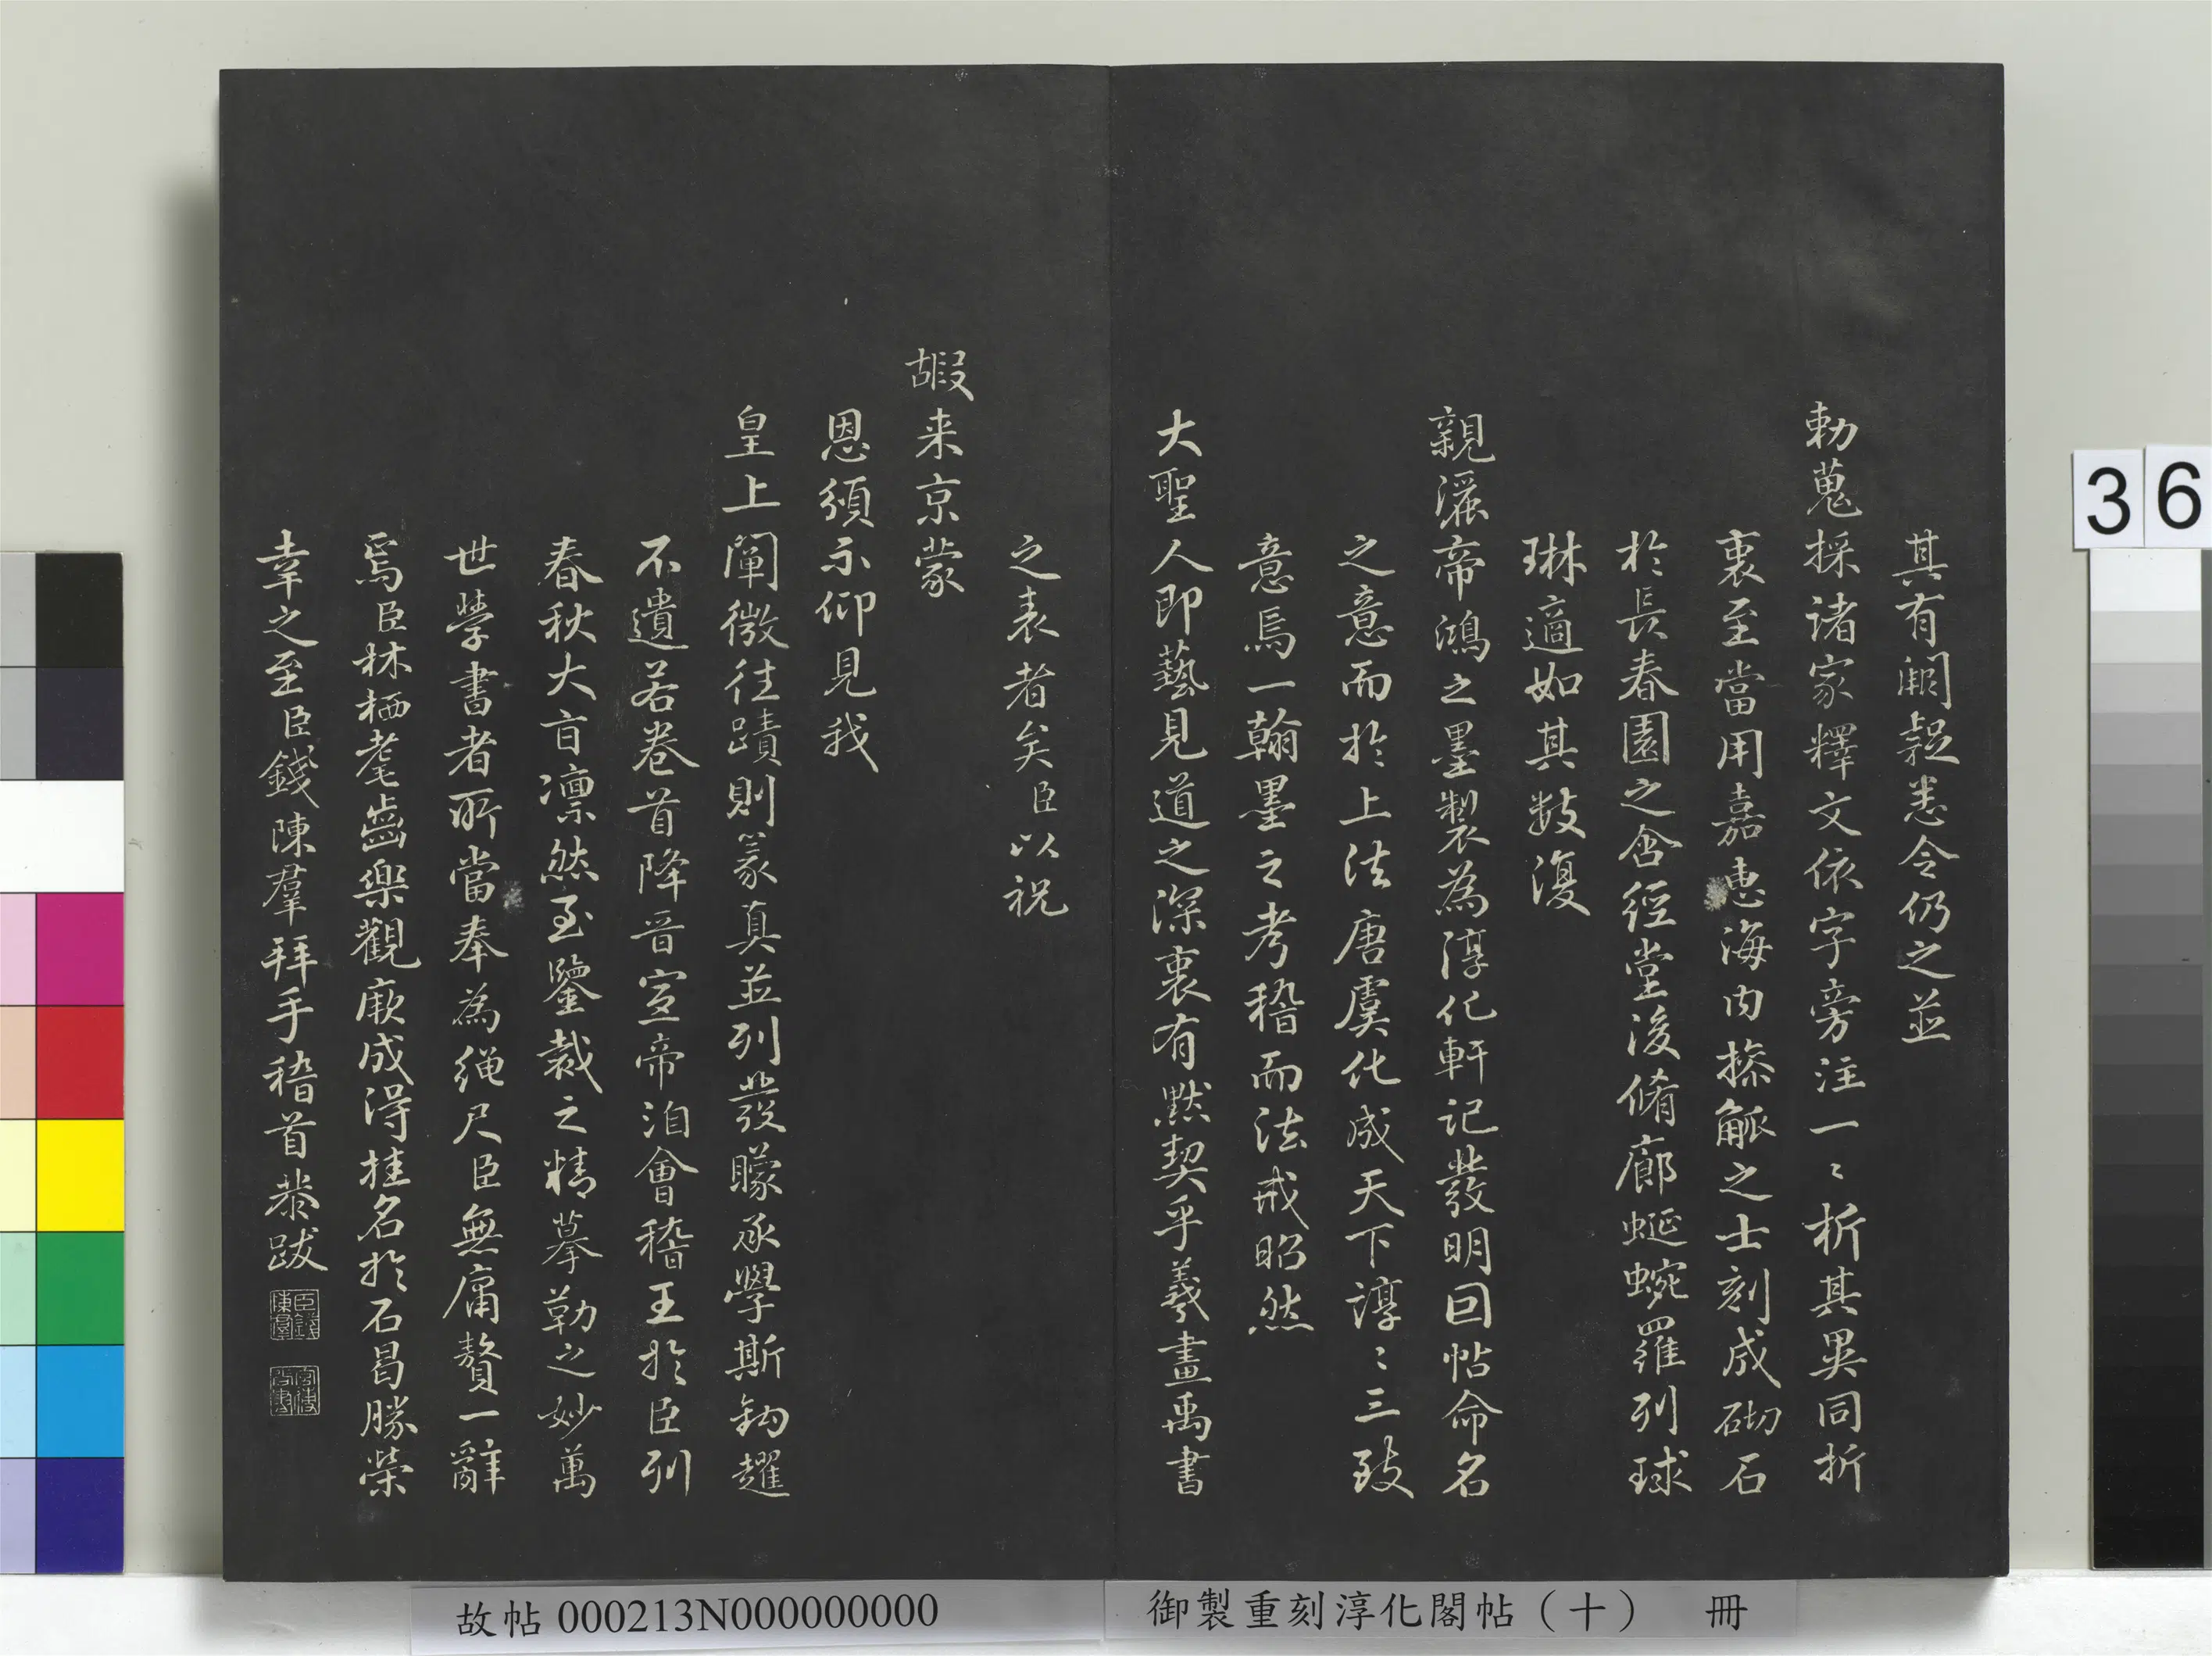 其有闕疑悉令仍之並
勅蒐採诸家釋文依字旁注一〻析其異同折
衷至當用嘉惠海内操觚之士刻成砌石
於長春園之含經堂後脩廊蜒蜿羅列球
琳適如其数復
親灑帝鴻之墨製為淳化軒記發明回帖命名
之意而於上法唐虞化成天下諄〻三致
意焉一翰墨之考稽而法戒昭然
大聖人即藝見道之深衷有默契乎羲畫禹書
之表者矣臣以祝
嘏来京蒙
恩頒示仰見我
皇上闡微徃蹟則篆真並列發矇承學斯鈎趯
不遺若卷首降晋宣帝洎會稽王於臣列
春秋大旨凛然至鑒裁之精摹勒之妙萬
世學書者所當奉為繩尺臣無庸贅一辭
焉臣林栖耄齒樂觀厥成得挂名於石曷勝榮
幸之至臣錢陳羣拜手稽首恭跋
臣錢陳羣
36
故帖000213N000000000
御製重刻淳化閣帖（十） 冊